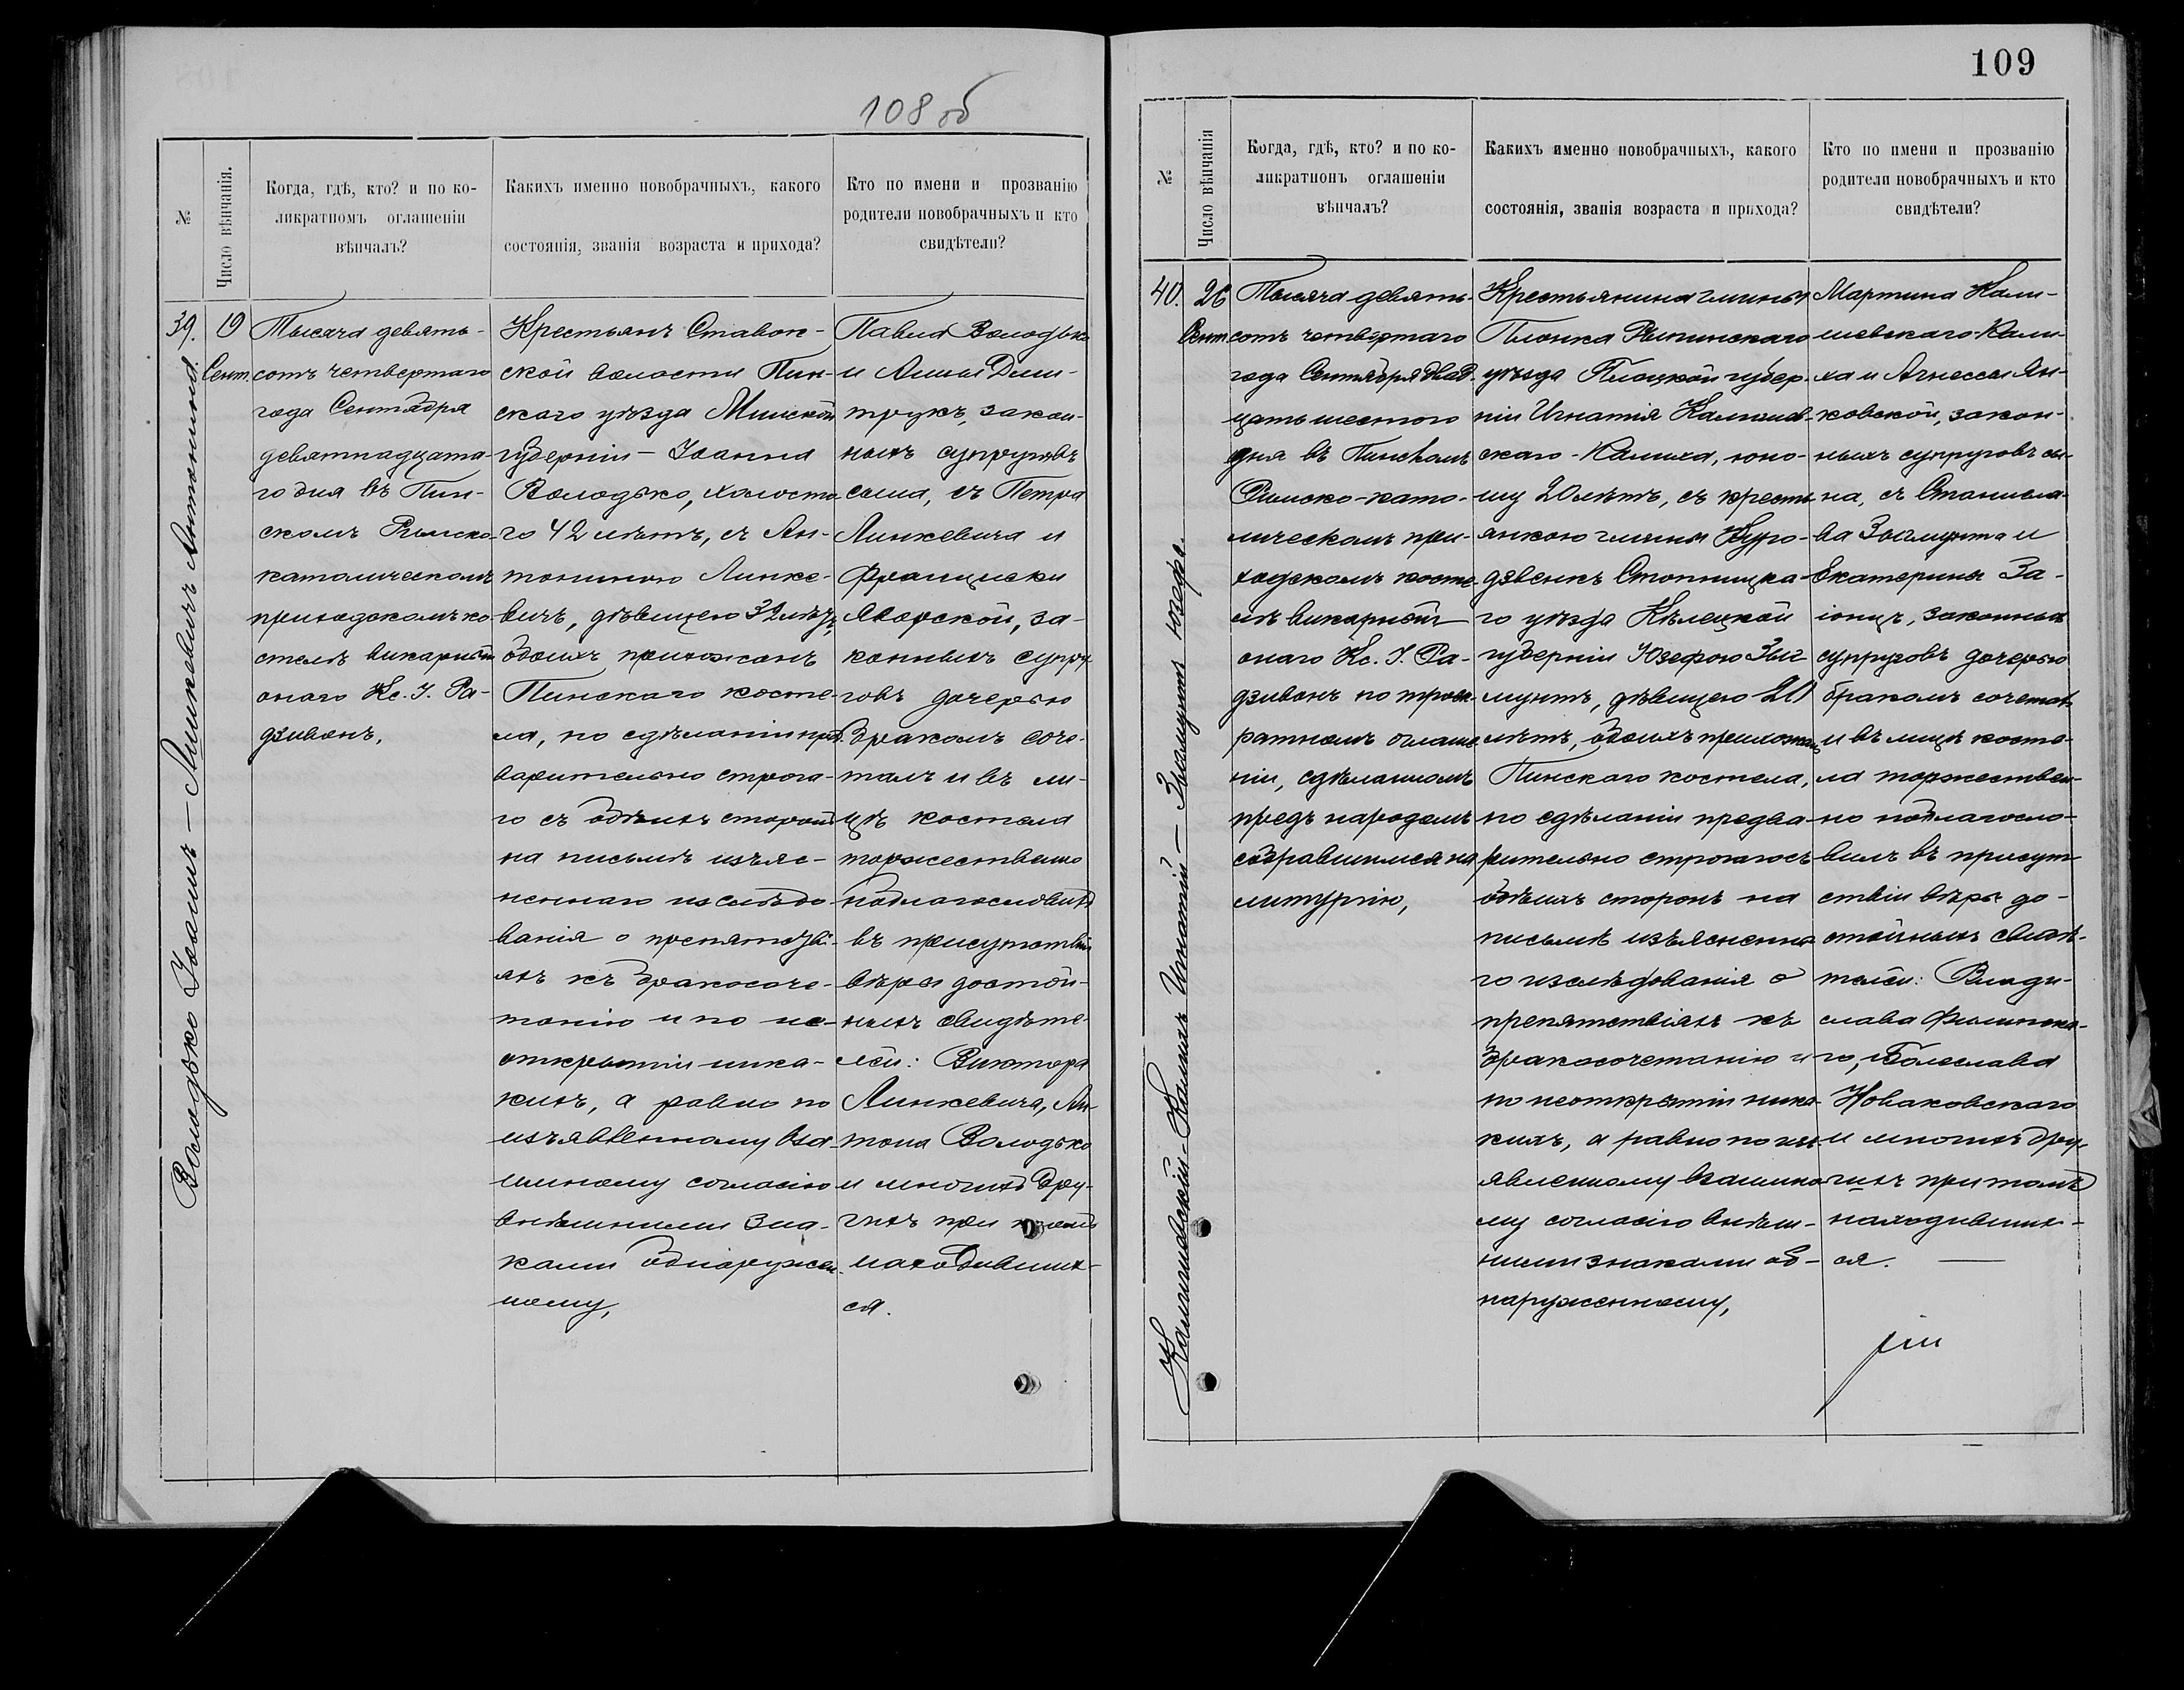 108 об
№
Число вѣнчанія.
Когда, гдѣ, кто? и по ко-
ликратномъ оглашеніи
вѣнчалъ?
Какихъ именно новобрачныхъ, какого
состоянія, званія возраста и прихода?
Кто по имени и прозванію
родители новобрачныхъ и кто
свидѣтели?
Володько Іоаннъ — Линкевичъ Антонина
39.
19
Сент.
Тысяча девять-
сотъ четвертаго
года Сентября
девятнадцата-
го дня въ Пин-
скомъ Римско-
католическомъ
приходскомъ ко-
стелѣ викарный
онаго Кс. І. Ра-
дзивонъ,
Крестьянъ Ставок-
ской волости Пин-
скаго уѣзда Минской
губерніи — Іоанна
Володько, холоста-
го 42 лѣтъ, съ Ан-
тониною Линке-
вичъ, дѣвицею 32 лѣтъ,
обоихъ прихожанъ
Пинскаго косте-
ла, по сдѣланіи пред-
варительно строга-
го съ обѣихъ сторонъ
на письмѣ изъяс-
неннаго изслѣдо
ванія о препятстві-
яхъ къ бракосоче-
танію и по не-
открытіи ника-
кихъ, а равно по
изъявленному вза-
имному согласію
внѣшними зна-
ками обнаружен-
ному,
Павла Володько
и Анны Дми-
трукъ, закон-
ныхъ супруговъ
сына, съ Петра
Линкевича и
Францишки
Яворской, за-
конныхъ супру-
говъ дочерью
бракомъ соче-
талъ и въ ли-
цѣ костела
торжественно
поблагословилъ
въ присутствіи
вѣры достой-
ныхъ свидѣте-
лей: Виктора
Линкевича, Ан-
тона Володько
и многихъ дру-
гихъ при томъ
находивших-
ся.
109
№
Число вѣнчанія
Когда, гдѣ, кто? и по ко-
ликратномъ оглашеніи
вѣнчалъ?
Какихъ именно новобрачныхъ, какого
состоянія, званія возраста и прихода?
Кто по имени и прозванію
родители новобрачныхъ и кто
свидѣтели?
40.
26
Сент
Тысяча девять-
сотъ четвертаго
года Сентября двад-
цать шестого
дня въ Пинскомъ
Римско-като-
лическомъ при-
ходскомъ косте-
лѣ викарный
онаго Кс. І. Ра-
дзивонъ по трое-
ратномъ оглаше-
ніи, сдѣланномъ
предъ народомъ
собравшимся на
литургію,
Крестьянина гмины
Плонка Рыпинскаго
уѣзда Плоцкой губер-
ніи Игнатія
скаго-Калиха, юно-
шу 20 лѣтъ, съ кресть
янкою гмины
Стопницка-
го уѣзда Кѣлецкой
губерніи Юзефою Зыг
мунтъ, дѣвицею 20
лѣтъ, обоихъ прихожанъ
Пинскаго костела,
по сдѣланіи предва-
рительно строгаго съ
обѣихъ сторонъ на
письмѣ изъясненна
го изслѣдованія о
препятствіяхъ къ
бракосочетанію и
по неоткрытіи ника-
кихъ, а равно по изъ-
явленному взаимно-
му согласію внѣш-
ними знаками об-
наруженному,
Мартина Кали-
шевскаго-Кали-
ха и Агнессы Ян-
ковской, закон-
ныхъ супруговъ сы-
на, съ Станисла-
ва Зыгмунта и
Екатерины За-
іонцъ, законныхъ
супруговъ дочерью
бракомъ сочеталъ
и въ лицѣ косте-
ла торжествен-
но поблагосло-
вилъ въ присут-
ствіи вѣры до-
стойныхъ свидѣ-
телей: Влади-
слава Филипска-
го, Болеслава
Новаковскаго
и многихъ дру-
гихъ при томъ
находивших-
ся.